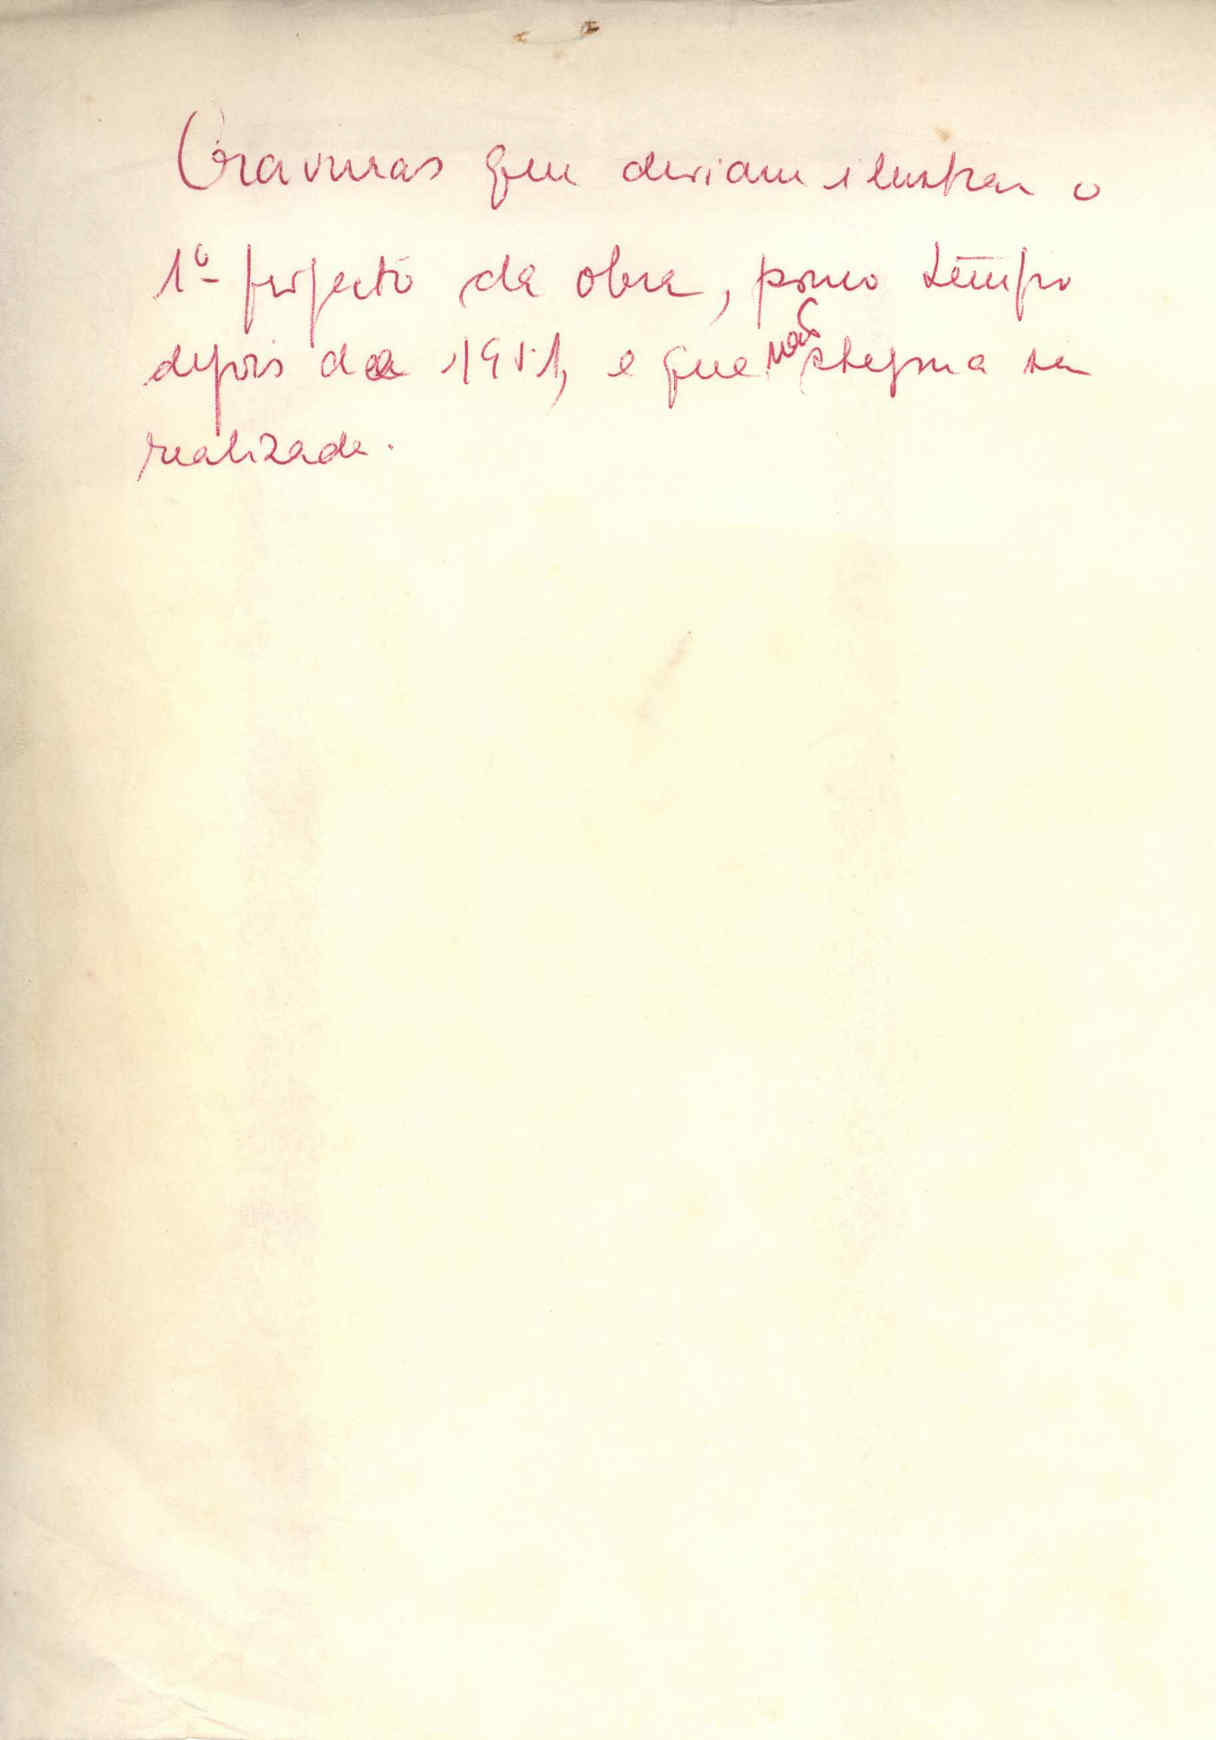 Gravuras que deviam ilustrar o
1º projecto da obra, pouco tempo
depois de 1951, e que não chegou a ser
realizada.